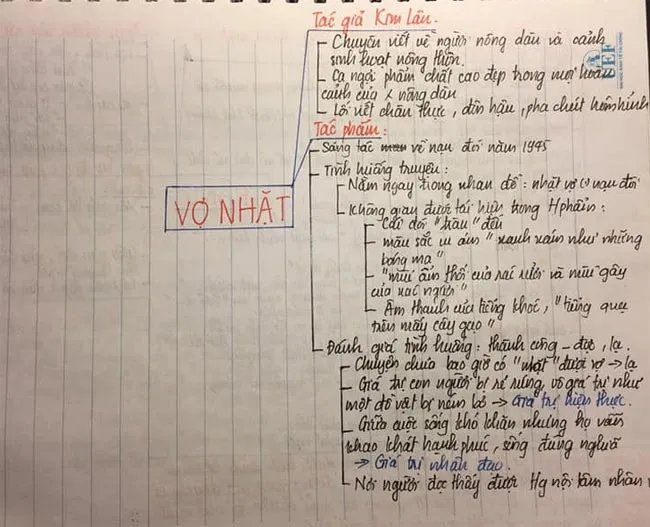 Tác giả Kim Lân.
- Chuyên viết về người nông dân và cảnh
sinh hoạt nông thôn.
- Ca ngợi phẩm chất cao đẹp trong mọi hoàn
cảnh của người nông dân
- Lối viết chân thực, đôn hậu, pha chút hóm hỉnh
UEF
Tác phẩm:
- Sáng tác về nạn đói năm 1945
- Tình huống truyện:
VỢ NHẶT
- Nằm ngay trong nhan đề: nhặt vợ nạn đói
- Không gian được tái hiện trong tphẩm:
- Cái đói "tràn" đến
- màu sắc u ám "xanh xám như những
bóng ma"
- "mùi ẩm thối của rác rưởi và mùi gây
của xác người"
- Âm thanh của tiếng khóc, "tiếng quạ
trên mấy cây gạo"
- Đánh giá tình huống: thành công - độc, lạ.
- Chuyện chưa bao giờ có "nhặt" được vợ → lạ
- Giá trị con người bị rẻ rúng, vô giá trị như
một đồ vật bị ném bỏ → Giá trị hiện thực.
- Giữa cuộc sống khó khăn nhưng họ vẫn
khao khát hạnh phúc, sống đúng nghĩa
→ Giá trị nhân đạo.
- Nơi người đọc thấy được nội tâm nhân